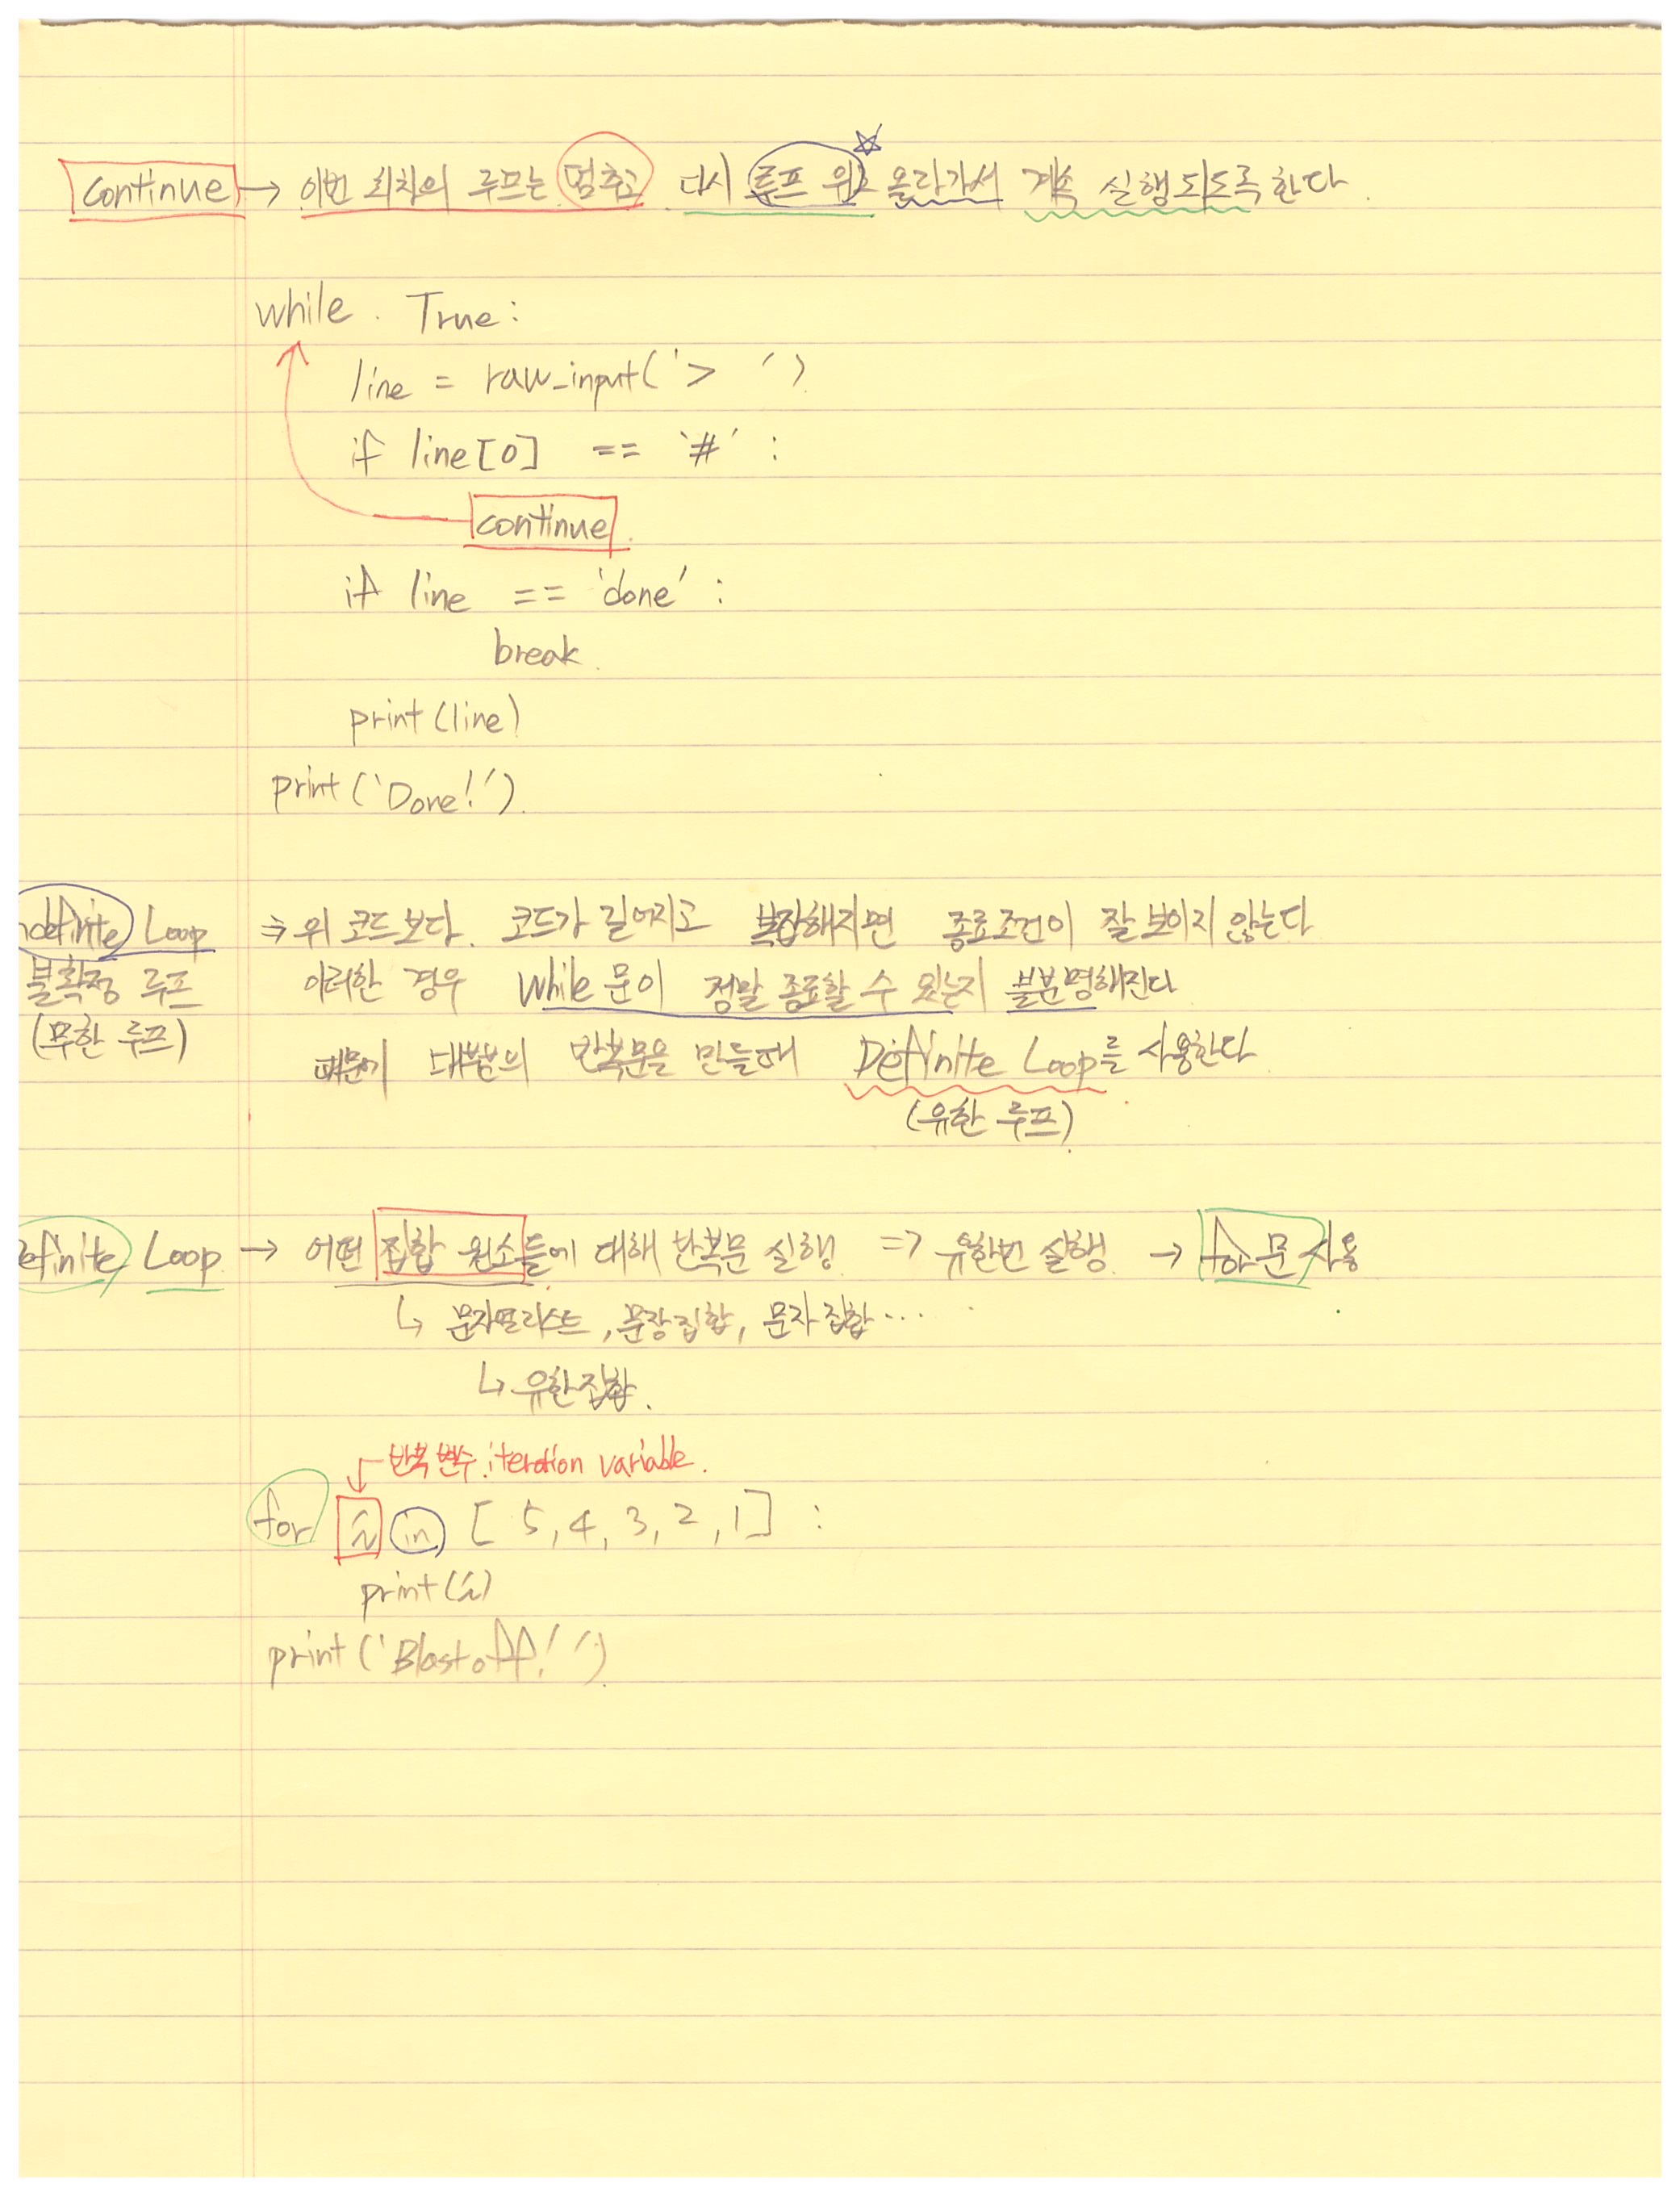 continue → 이번 회차의 루프는 멈추고 다시 루프 위로 올라가서 계속 실행되도록 한다
while True:
line = raw_input('> ')
if line[0] == '#' :
continue
if line == 'done' :
break
print(line)
print('Done!')
ndefinite Loop ⇒ 위 코드보다 코드가 길어지고 복잡해지면 종료조건이 잘 보이지 않는다
불확정 루프 이러한 경우 while 문이 정말 종료할 수 있는지 불분명해진다
(무한 루프) 때문에 대부분의 반복문을 만들때 Definite Loop를 사용한다
(유한 루프)
efinite Loop → 어떤 집합 원소들에 대해 반복문 실행 ⇒ 유한번 실행 → for문 사용
↳ 문자열리스트, 문장집합, 문자집합...
↳ 유한집합.
반복 변수. iteration variable.
for i in [ 5, 4, 3, 2, 1] :
print(i)
print('Blastoff!')